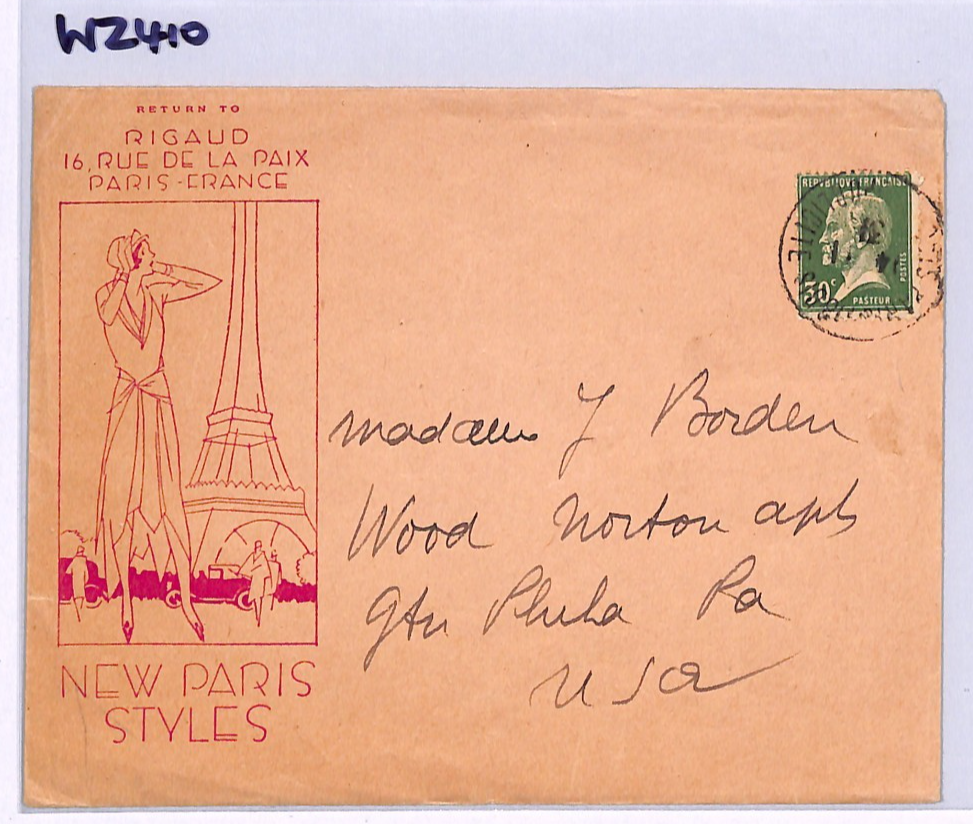 WZ410
RETURN TO
RIGAUD
16, RUE DE LA PAIX
PARIS-FRANCE
REPVBLIQVE FRANCAISE
30c
POSTES
PASTEUR
madame J Borden
Wood Norton apts
gtn Phila Pa
USA
NEW PARIS
STYLES